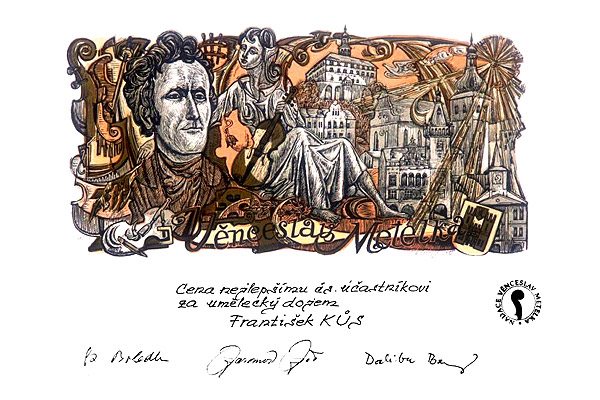 Věnceslav Metelka
Cena nejlepšímu čs. účastníkovi
za umělecký dojem
František KŮS
NADACE VĚNCESLAV METELKA